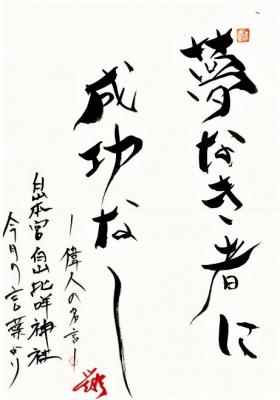 夢なき者に
成功なし
ー偉人の名言ー
白山本宮白山比咩神社
今月の言葉より